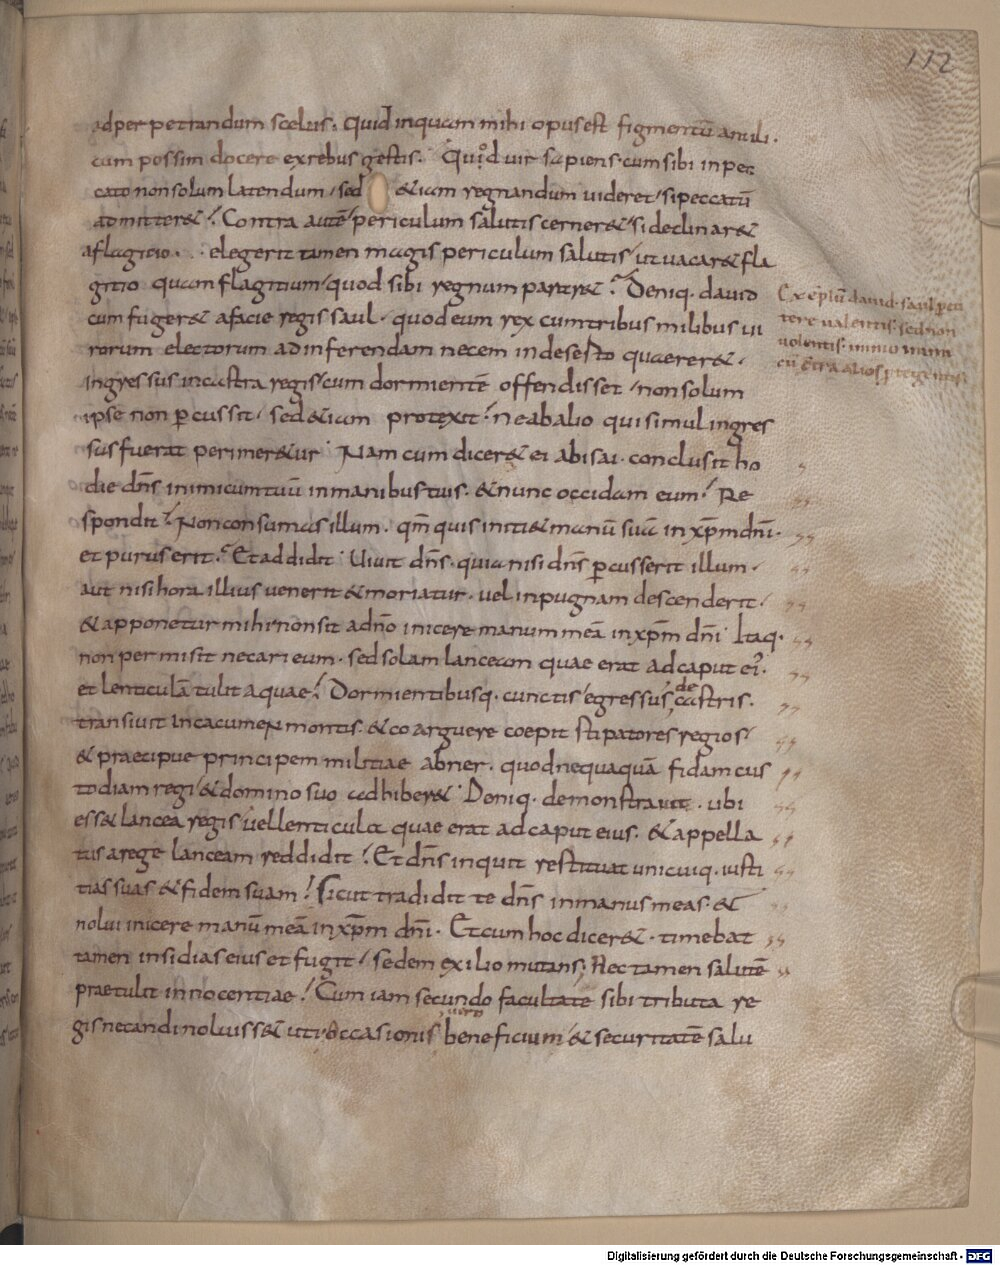 112
ad perpetrandum scelus. Quid inquam mihi opus est figmentū anili.
cum possim docere ex rebus gestis. Quid vir sapiens cum sibi in pec
cato non solum latendum / sed &iam regnandum videret / si peccatū
admitter&? Contra autē periculum salutis cerner& / si declinar&
a flagitio. elegerit tamen magis periculum salutis / ut vacar& fla
gitio quam flagitium / quod sibi regnum parar&? Deniq. david
cum fuger& a facie regis saul. quod eum rex cum tribus milibus vi
rorum electorum ad inferendam necem in deserto quaerer&.
ingressus in castra regis / cum dormientē offendisset / non solum
ipse non pcussit / sed &iam protexit? ne ab alio qui simul ingres
sus fuerat perimer&ur Nam cum dicer& ei abisai. conclusit ho
die dn̄s inimicum tuū in manibus tuis. & nunc occidam eum? Re
spondit? Non consumas illum. qm̄ quis initi& manū suā in xp̄m dn̄i.
et purus erit? Et addidit Vivit dn̄s. quia nisi dn̄s pcusserit illum.
aut nisi hora illius venerit & moriatur. vel in pugnam descenderit /
& apponetur mihi non sit a dn̄o inicere manum meā in xp̄m dn̄i Itaq.
non permisit necari eum. sed solam lanceam quae erat ad caput ei'.
et lenticulā tulit aquae? Dormientibusq. cunctis egressus de castris.
transivit in cacumen montis. & coarguere coepit stipatores regios /
& praecipue principem militiae abner. quod nequaquā fidam cus
todiam regi / & domino suo adhiber& Deniq. demonstravit. ubi
ess& lancea regis vel lenticula quae erat ad caput eius. & appella
tus a rege lanceam reddidit? Et dn̄s inquit restituat unicuiq. iusti
tias suas & fidem suam? Sicut tradidit te dn̄s in manus meas. &
nolui inicere manū meā in xp̄m dn̄i. Et cum hoc dicer&. timebat
tamen insidias eius et fugit / sedem exilio mutans; Nec tamen salutē
praetulit innocentiae? Cum iam secundo facultate sibi tributa re
gis necandi noluiss& uti occasionis beneficium / & securitatē salu
Exēplū david. saul
valentis. sed non
volentis. immo
cū alios
Digitalisierung gefördert durch die Deutsche Forschungsgemeinschaft - DFG